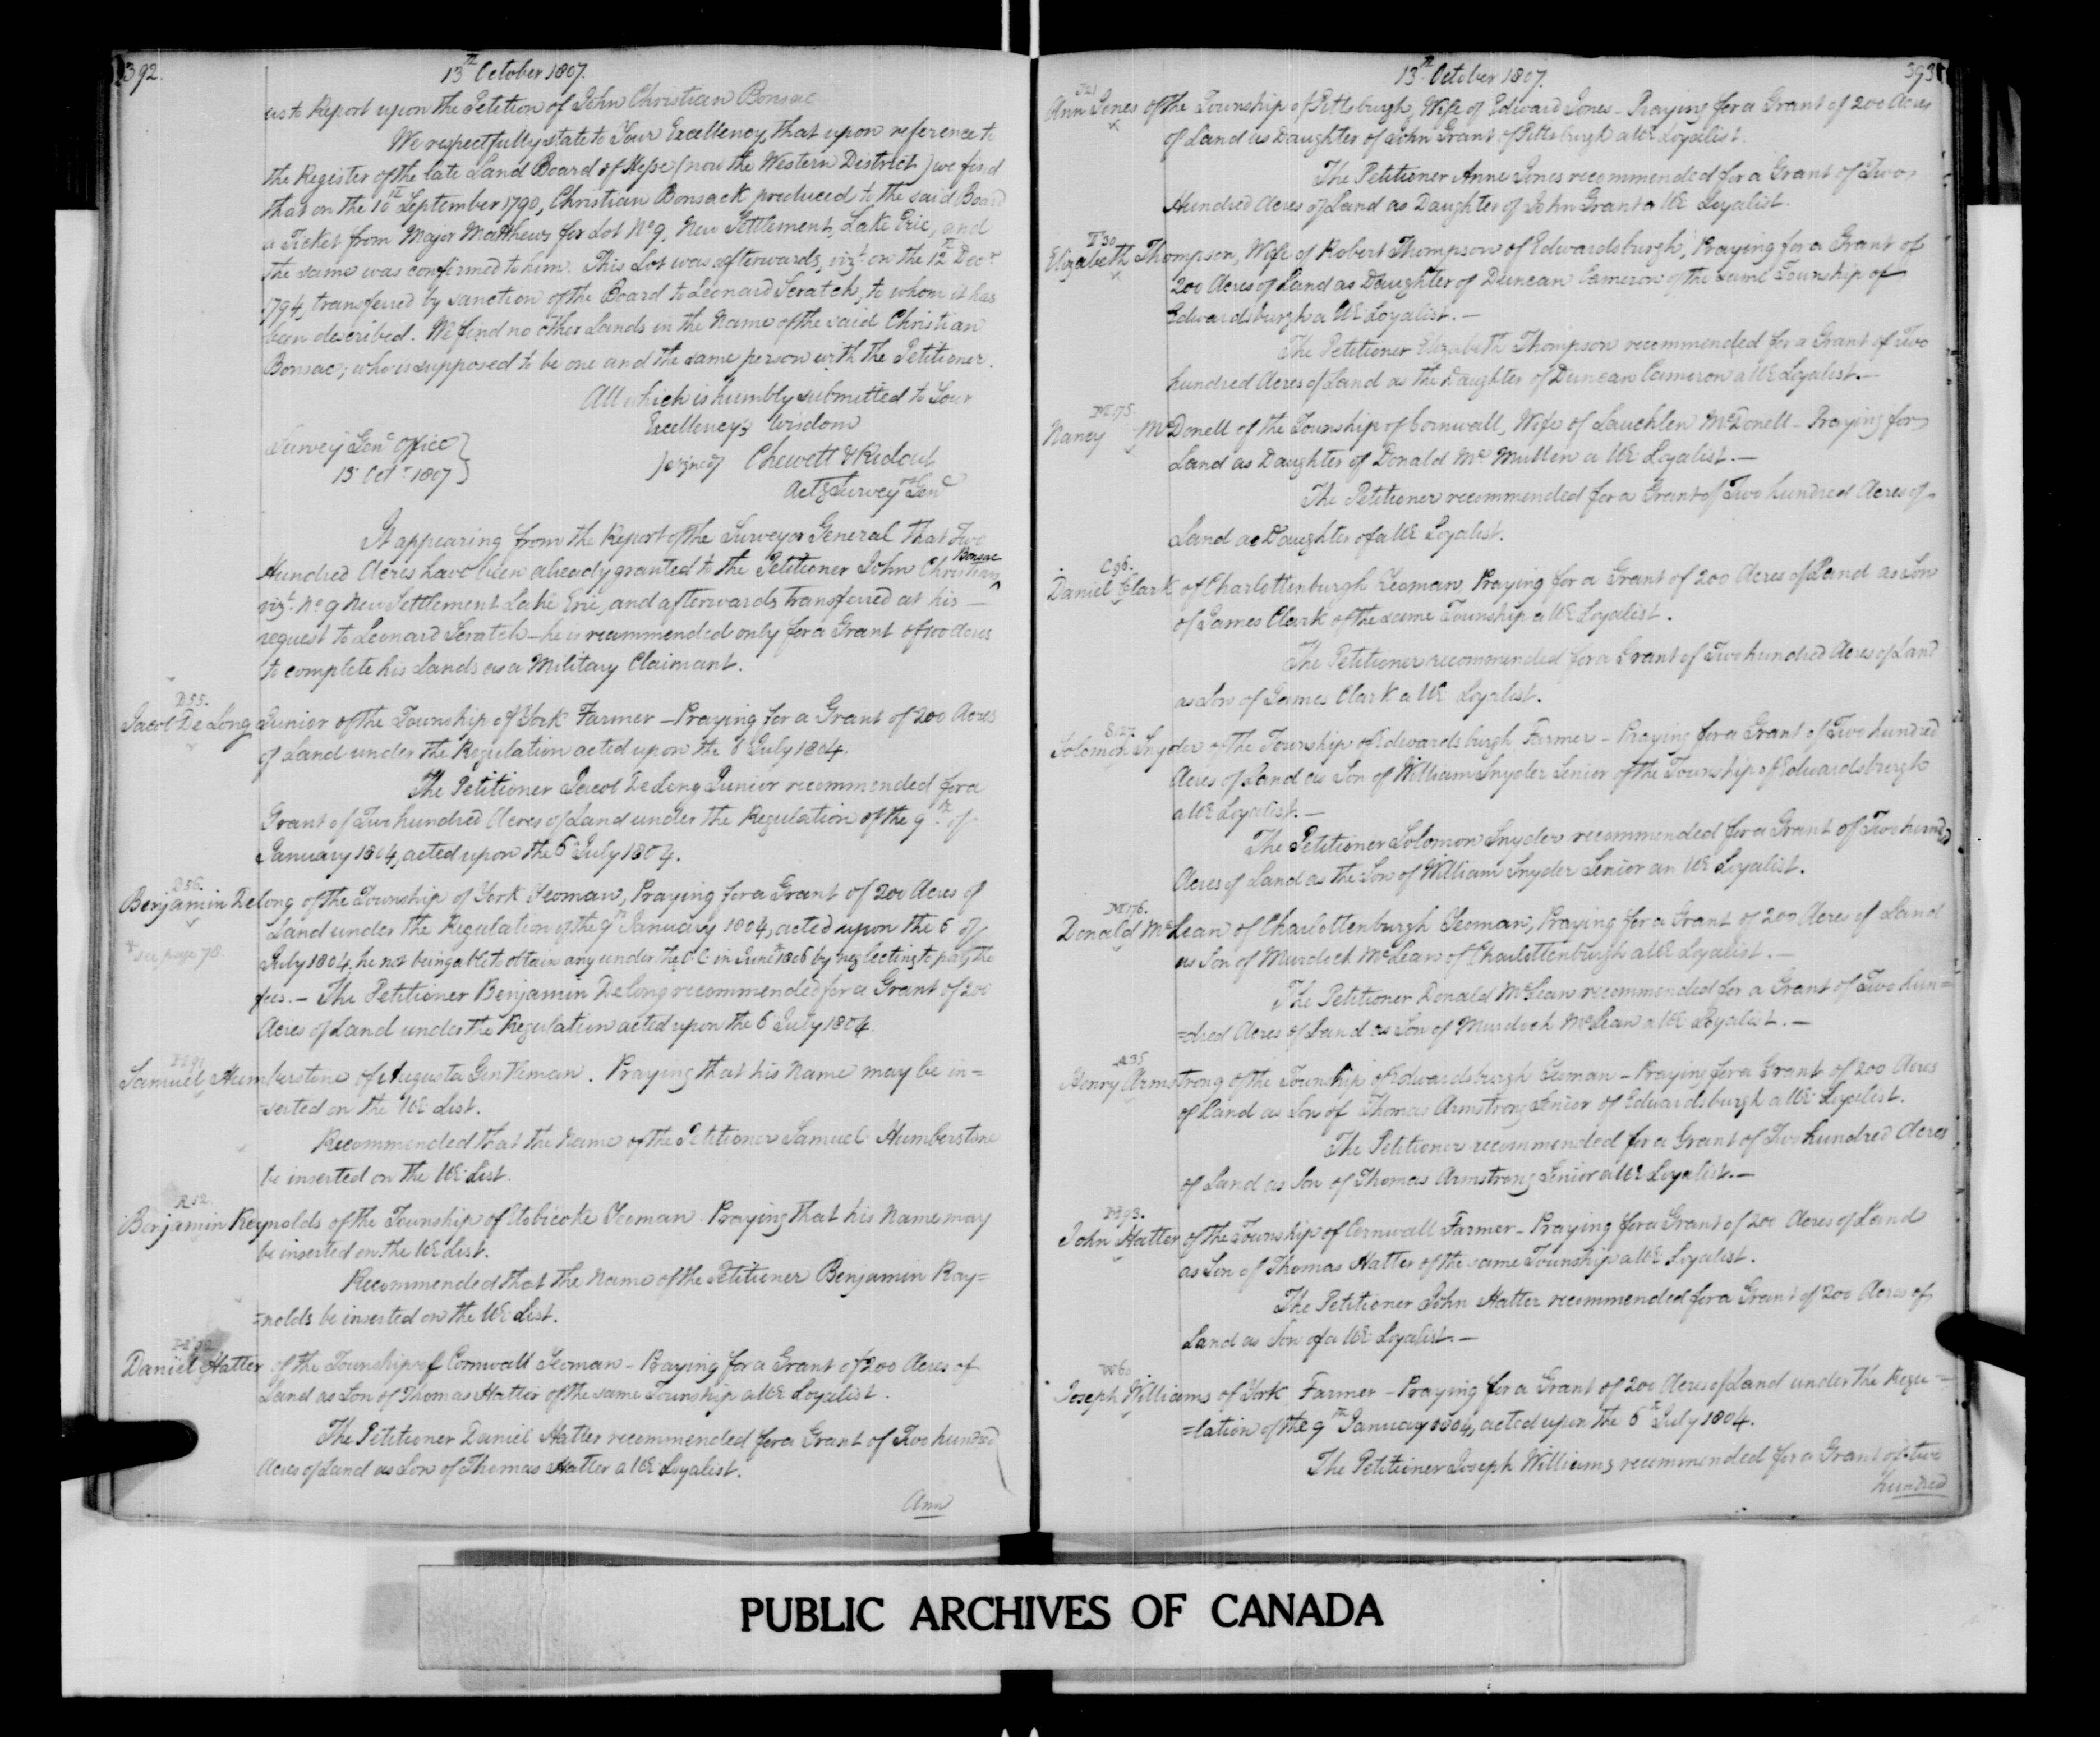 392.
13th October 1807.
us to Report upon the Petition of John Christian Bonsac
We respectfully state to Your Excellency, that upon reference to
the Register of the late Land Board of Hesse (now the Western District) we find
that on the 10th September 1790, Christian Bonsack produced to the said Board
a Ticket from Major Matthews for Lot No 9. New Settlement, Lake Erie, and
the same was confirmed to him. This Lot was afterwards, vizt. on the 12th Decr.
1794, transferred by sanction of the Board to Leonard Scratch, to whom it has
been described. We find no other Lands in the Name of the said Christian
Bonsac; who is supposed to be one and the same person with the Petitioner.
All which is humbly submitted to Your
Excellency's Wisdom
Survey Genl Office }
13 Octr 1807 }
(signed) Chewett & Ridout
Actg Surveyrs Genl
It appearing from the Report of the Surveyor General that Two
Hundred Acres have been already granted to the Petitioner John Christian ^Bonsac
vizt. No 9 New Settlement Lake Erie, and afterwards transferred at his
request to Leonard Scratch — he is recommended only for a Grant of 100 Acres
to complete his Lands as a Military Claimant.
D55.
Jacob De Long Junior of the Township of York Farmer — Praying for a Grant of 200 Acres
of Land under the Regulation acted upon the 6 July 1804.
The Petitioner Jacob De Long Junior recommended for a
Grant of Two hundred Acres of Land under the Regulation of the 9th of
January 1804, acted upon the 6 July 1804.
D56.
Benjamin Delong of the Township of York Yeoman, Praying for a Grant of 200 Acres of
Land under the Regulation of the 9th January 1804, acted upon the 6 of
* see page 78.
July 1804, he not being able to obtain any under the O.C. in June* 1806 by neglecting to pay the
fees. — The Petitioner Benjamin Delong recommended for a Grant of 200
Acres of Land under the Regulation acted upon the 6 July 1804.
H91
Samuel Humberstone of Augusta Gentleman. Praying that his Name may be in=
=serted on the UE List.
Recommended that the Name of the Petitioner Samuel Humberstone
be inserted on the UE List.
R52.
Benjamin Reynolds of the Township of Etobicoke Yeoman. Praying that his Name may
be inserted on the UE List.
Recommended that the Name of the Petitioner Benjamin Ray=
=nolds be inserted on the UE List.
Daniel Hatter of the Township of Cornwall Yeoman — Praying for a Grant of 200 Acres of
Land as Son of Thomas Hatter of the same Township a UE Loyalist.
The Petitioner Daniel Hatter recommended for a Grant of Two hundred
Acres of Land as Son of Thomas Hatter a UE Loyalist.
Ann
13th October 1807.
393
J21
Ann Jones of the Township of Pittsburgh, Wife of Edward Jones — Praying for a Grant of 200 Acres
of Land as Daughter of John Grant of Pittsburgh a UE Loyalist.
The Petitioner Anne Jones recommended for a Grant of Two
Hundred Acres of Land as Daughter of John Grant a UE Loyalist.
T30
Elizabeth Thompson, Wife of Robert Thompson of Edwardsburgh, Praying for a Grant of
200 Acres of Land as Daughter of Duncan Cameron of the same Township of
Edwardsburgh a UE Loyalist. —
The Petitioner Elizabeth Thompson recommended for a Grant of Two
hundred Acres of Land as the Daughter of Duncan Cameron a UE Loyalist. —
M175.
Nancy McDonell of the Township of Cornwall, Wife of Lauchlen McDonell — Praying for
Land as Daughter of Donald Mc Mullen a UE Loyalist. —
The Petitioner recommended for a Grant of Two hundred Acres of
Land as Daughter of a UE Loyalist.
C96.
Daniel Clark of Charlottenburgh Yeoman, Praying for a Grant of 200 Acres of Land as Son
of James Clark of the same Township a UE Loyalist.
The Petitioner recommended for a Grant of Two hundred Acres of Land
as Son of James Clark a UE Loyalist.
S127.
Solomon Snyder of the Township of Edwardsburgh Farmer — Praying for a Grant of Two hundred
Acres of Land as Son of William Snyder Senior of the Township of Edwardsburgh
a UE Loyalist. —
The Petitioner Solomon Snyder recommended for a Grant of Two hundd
Acres of Land as the Son of William Snyder Senior an UE Loyalist.
M176.
Donald McLean of Charlottenburgh Yeoman, Praying for a Grant of 200 Acres of Land
as Son of Murdoch McLean of Charlottenburgh a UE Loyalist. —
The Petitioner Donald McLean recommended for a Grant of Two hun=
=dred Acres of Land as Son of Murdoch McLean a UE Loyalist. —
A35
Henry Armstrong of the Township of Edwardsburgh Yeoman — Praying for a Grant of 200 Acres
of Land as Son of Thomas Armstrong Senior of Edwardsburgh a UE Loyalist.
The Petitioner recommended for a Grant of Two hundred Acres
of Land as Son of Thomas Armstrong Senior a UE Loyalist. —
H93.
John Hatter of the Township of Cornwall Farmer — Praying for a Grant of 200 Acres of Land
as Son of Thomas Hatter of the same Township a UE Loyalist.
The Petitioner John Hatter recommended for a Grant of 200 Acres of
Land as Son of a UE Loyalist. —
W60
Joseph Williams of York Farmer — Praying for a Grant of 200 Acres of Land under the Regu=
=lation of the 9th January 1804, acted upon the 6th July 1804.
The Petitioner Joseph Williams recommended for a Grant of two
hundred
PUBLIC ARCHIVES OF CANADA